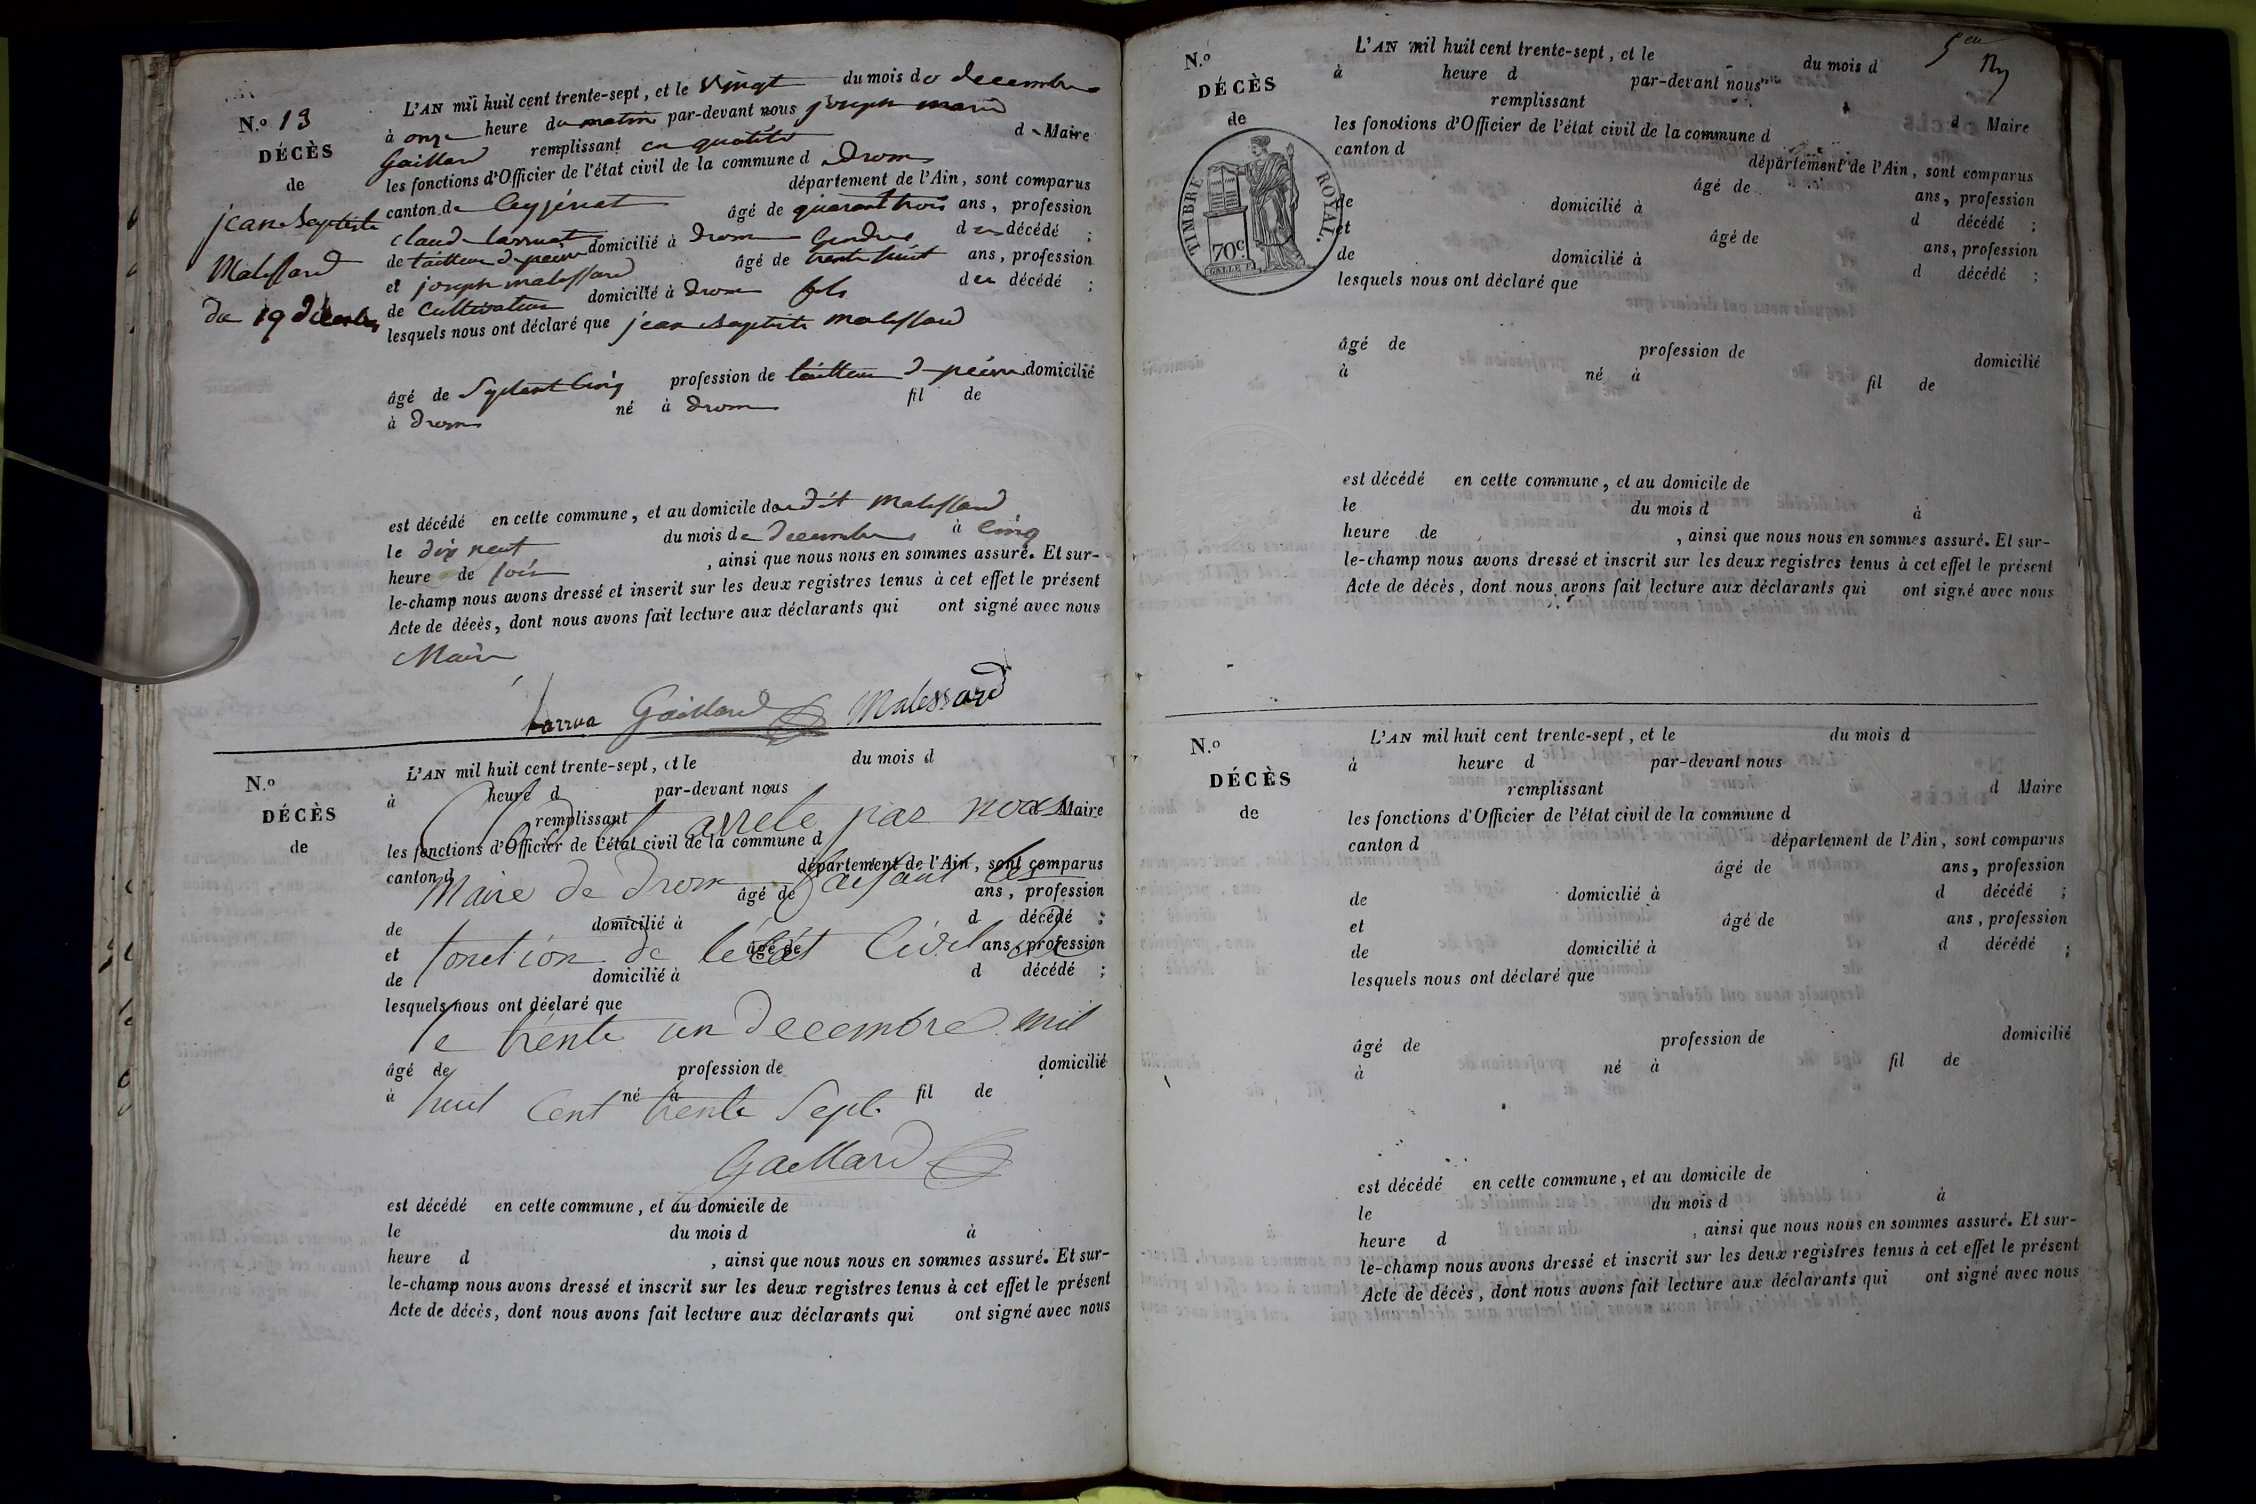 N.o 13
DÉCÈS
de
jean Baptiste
Malessard
du 19 décembre
L'AN mil huit cent trente-sept, et le vingt du mois de decembre
à onze heure du matin par-devant nous joseph marie
Gaillard remplissant en qualité de Maire
les fonctions d'Officier de l'état civil de la commune d drom
canton de Ceyzériat département de l'Ain, sont comparus
claude Larruat âgé de quarant trois ans, profession
de tailleur d pierre domicilié à drom Gendre du décédé ;
et joseph malessard âgé de trente huit ans, profession
de Cultivateur domicilié à drom fils du décédé ;
lesquels nous ont déclaré que jean Baptiste malessard
âgé de Septent Cinq profession de tailleur d pierre domicilié
à drom né à drom fil de
est décédé en cette commune, et au domicile du dit malessard
le dix neuf du mois de decembre à Cinq
heure de soir , ainsi que nous nous en sommes assuré. Et sur-
le-champ nous avons dressé et inscrit sur les deux registres tenus à cet effet le présent
Acte de décès, dont nous avons fait lecture aux déclarants qui ont signé avec nous
Maire
Larrua Gaillard Malessard
N.o
DÉCÈS
de
L'AN mil huit cent trente-sept, et le du mois d
à heure d par-devant nous
remplissant d Maire
arrêté par nous
les fonctions d'Officier de l'état civil de la commune d
canton d département de l'Ain, sont comparus
Maire de drom faisant les
âgé de ans, profession
de domicilié à d décédé ;
et âgé de ans, profession
fonction de l'état Civil
de domicilié à d décédé ;
lesquels nous ont déclaré que
le trente un decembre mil
âgé de profession de domicilié
à né à fil de
huit Cent trente Sept
Gaillard
est décédé en cette commune, et au domicile de
le du mois d à
heure d , ainsi que nous nous en sommes assuré. Et sur-
le-champ nous avons dressé et inscrit sur les deux registres tenus à cet effet le présent
Acte de décès, dont nous avons fait lecture aux déclarants qui ont signé avec nous
N.o
DÉCÈS
de
TIMBRE ROYAL.
70c
GALLE F.
L'AN mil huit cent trente-sept, et le du mois d
à heure d par-devant nous
remplissant d Maire
les fonctions d'Officier de l'état civil de la commune d
canton d département de l'Ain, sont comparus
âgé de ans, profession
de domicilié à d décédé ;
et âgé de ans, profession
de domicilié à d décédé ;
lesquels nous ont déclaré que
âgé de profession de domicilié
à né à fil de
est décédé en cette commune, et au domicile de
le du mois d à
heure de , ainsi que nous nous en sommes assuré. Et sur-
le-champ nous avons dressé et inscrit sur les deux registres tenus à cet effet le présent
Acte de décès, dont nous avons fait lecture aux déclarants qui ont signé avec nous
N.o
DÉCÈS
de
L'AN mil huit cent trente-sept, et le du mois d
à heure d par-devant nous
remplissant d Maire
les fonctions d'Officier de l'état civil de la commune d
canton d département de l'Ain, sont comparus
âgé de ans, profession
de domicilié à d décédé ;
et âgé de ans, profession
de domicilié à d décédé ;
lesquels nous ont déclaré que
âgé de profession de domicilié
à né à fil de
est décédé en cette commune, et au domicile de
le du mois d à
heure d , ainsi que nous nous en sommes assuré. Et sur-
le-champ nous avons dressé et inscrit sur les deux registres tenus à cet effet le présent
Acte de décès, dont nous avons fait lecture aux déclarants qui ont signé avec nous